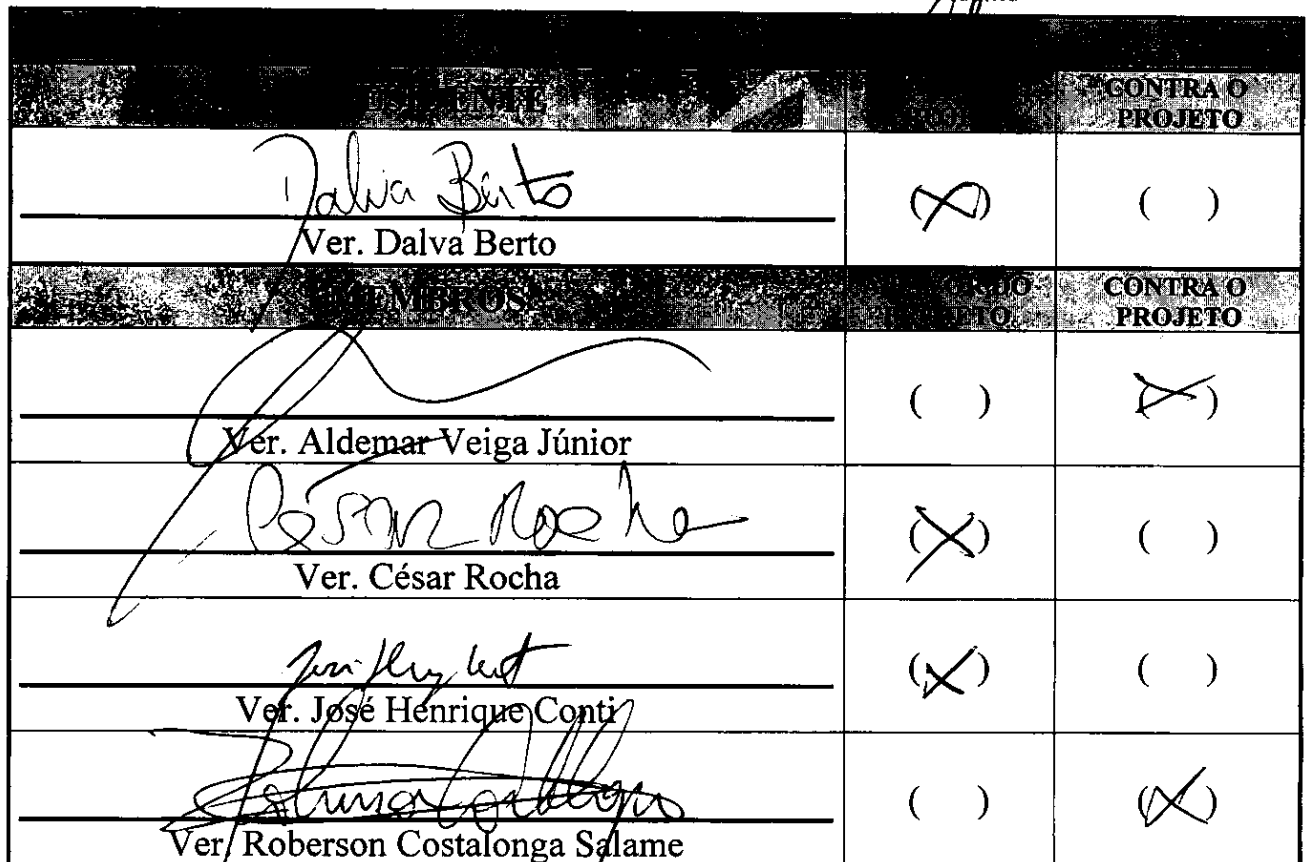 CONTRA O
PROJETO
Dalva Berto
(X) ( )
Ver. Dalva Berto
MEMBROS
CONTRA O
PROJETO
( ) (X)
Ver. Aldemar Veiga Júnior
César Rocha
(X) ( )
Ver. César Rocha
(X) ( )
Ver. José Henrique Conti
( ) (X)
Ver. Roberson Costalonga Salame